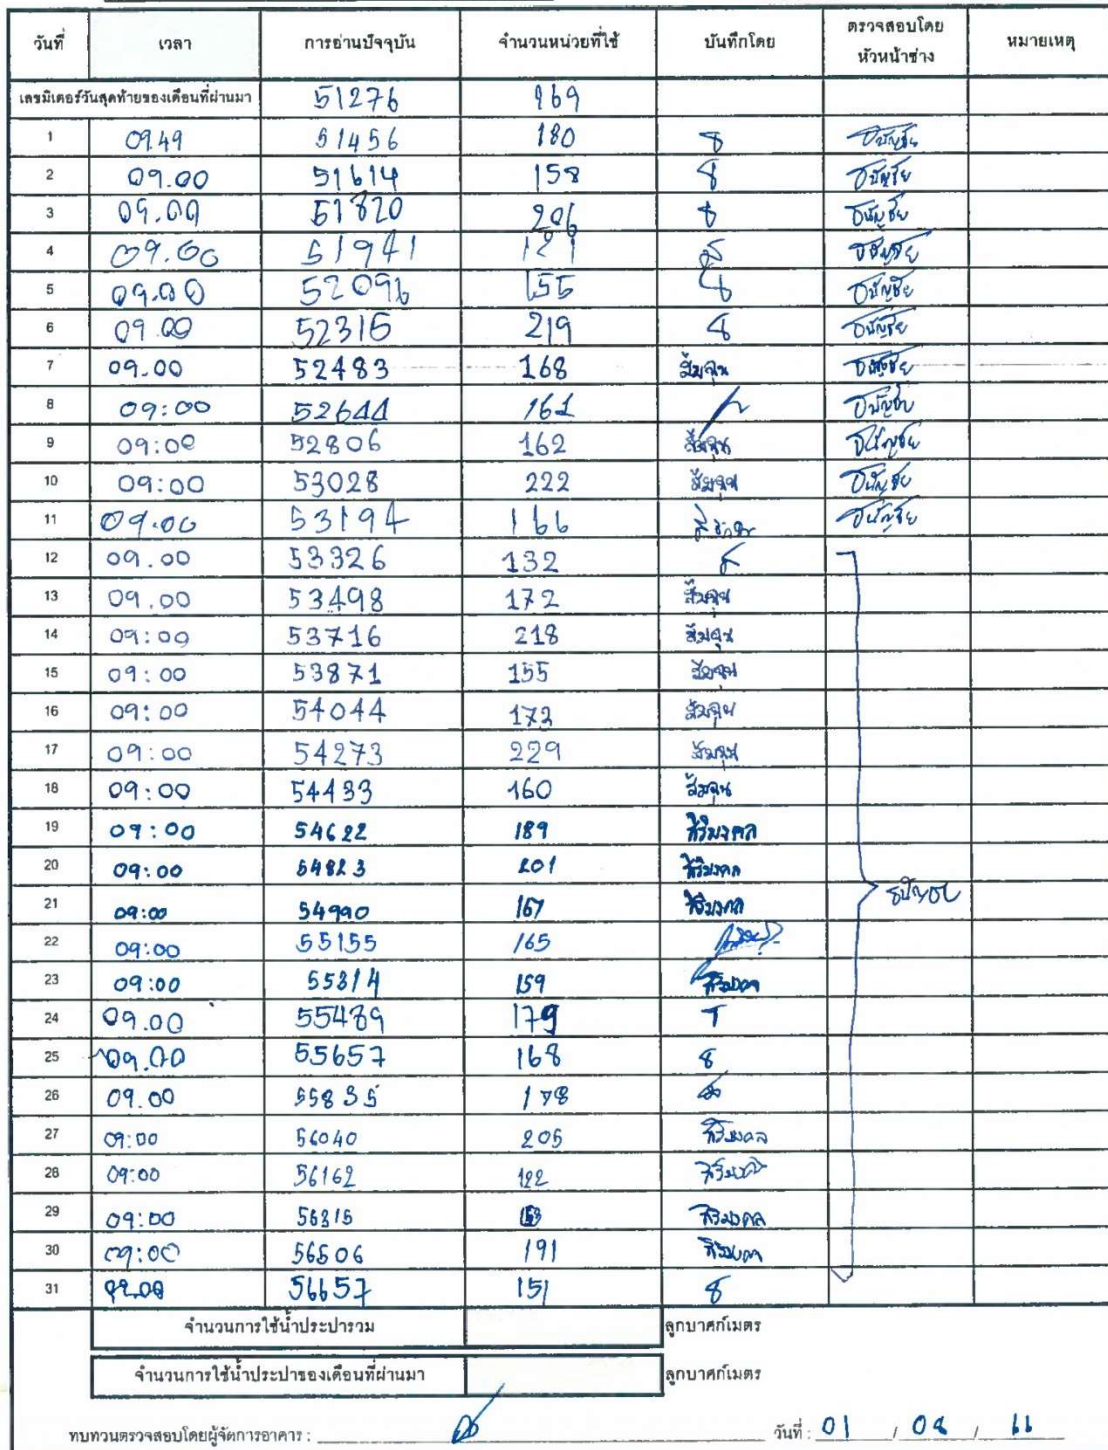 วันที่ เวลา การอ่านปัจจุบัน จำนวนหน่วยที่ใช้ บันทึกโดย ตรวจสอบโดย หัวหน้าช่าง หมายเหตุ
เลขมิเตอร์วันสุดท้ายของเดือนที่ผ่านมา 51276 169
1 09.49 51456 180 8 ธนัญชัย
2 09.00 51614 158 8 ธนัญชัย
3 09.00 51820 206 8 ธนัญชัย
4 09.00 51941 121 ธนัญชัย
5 09.00 52096 155 8 ธนัญชัย
6 09.00 52315 219 8 ธนัญชัย
7 09.00 52483 168 สัมฤทธิ์ ธนัญชัย
8 09:00 52644 161 ธนัญชัย
9 09:00 52806 162 ธนัญชัย
10 09:00 53028 222 ธนัญชัย
11 09.00 53194 166 ธนัญชัย
12 09.00 53326 132
13 09.00 53498 172
14 09:00 53716 218
15 09:00 53871 155
16 09:00 54044 173
17 09:00 54273 229
18 09:00 54433 160
19 09:00 54622 189 ศิริมงคล
20 09:00 54823 201 ศิริมงคล
21 09:00 54990 167 ศิริมงคล ธนัญชัย
22 09:00 55155 165
23 09:00 55314 159 ศิริมงคล
24 09.00 55489 179 T
25 09.00 55657 168 8
26 09.00 55835 178
27 09:00 56040 205 ศิริมงคล
28 09:00 56162 122 ศิริมงคล
29 09:00 56315 153 ศิริมงคล
30 09:00 56506 191 ศิริมงคล
31 09.00 56657 151 8
จำนวนการใช้น้ำประปารวม ลูกบาศก์เมตร
จำนวนการใช้น้ำประปาของเดือนที่ผ่านมา ลูกบาศก์เมตร
ทบทวนตรวจสอบโดยผู้จัดการอาคาร : วันที่ : 01 / 08 / 66